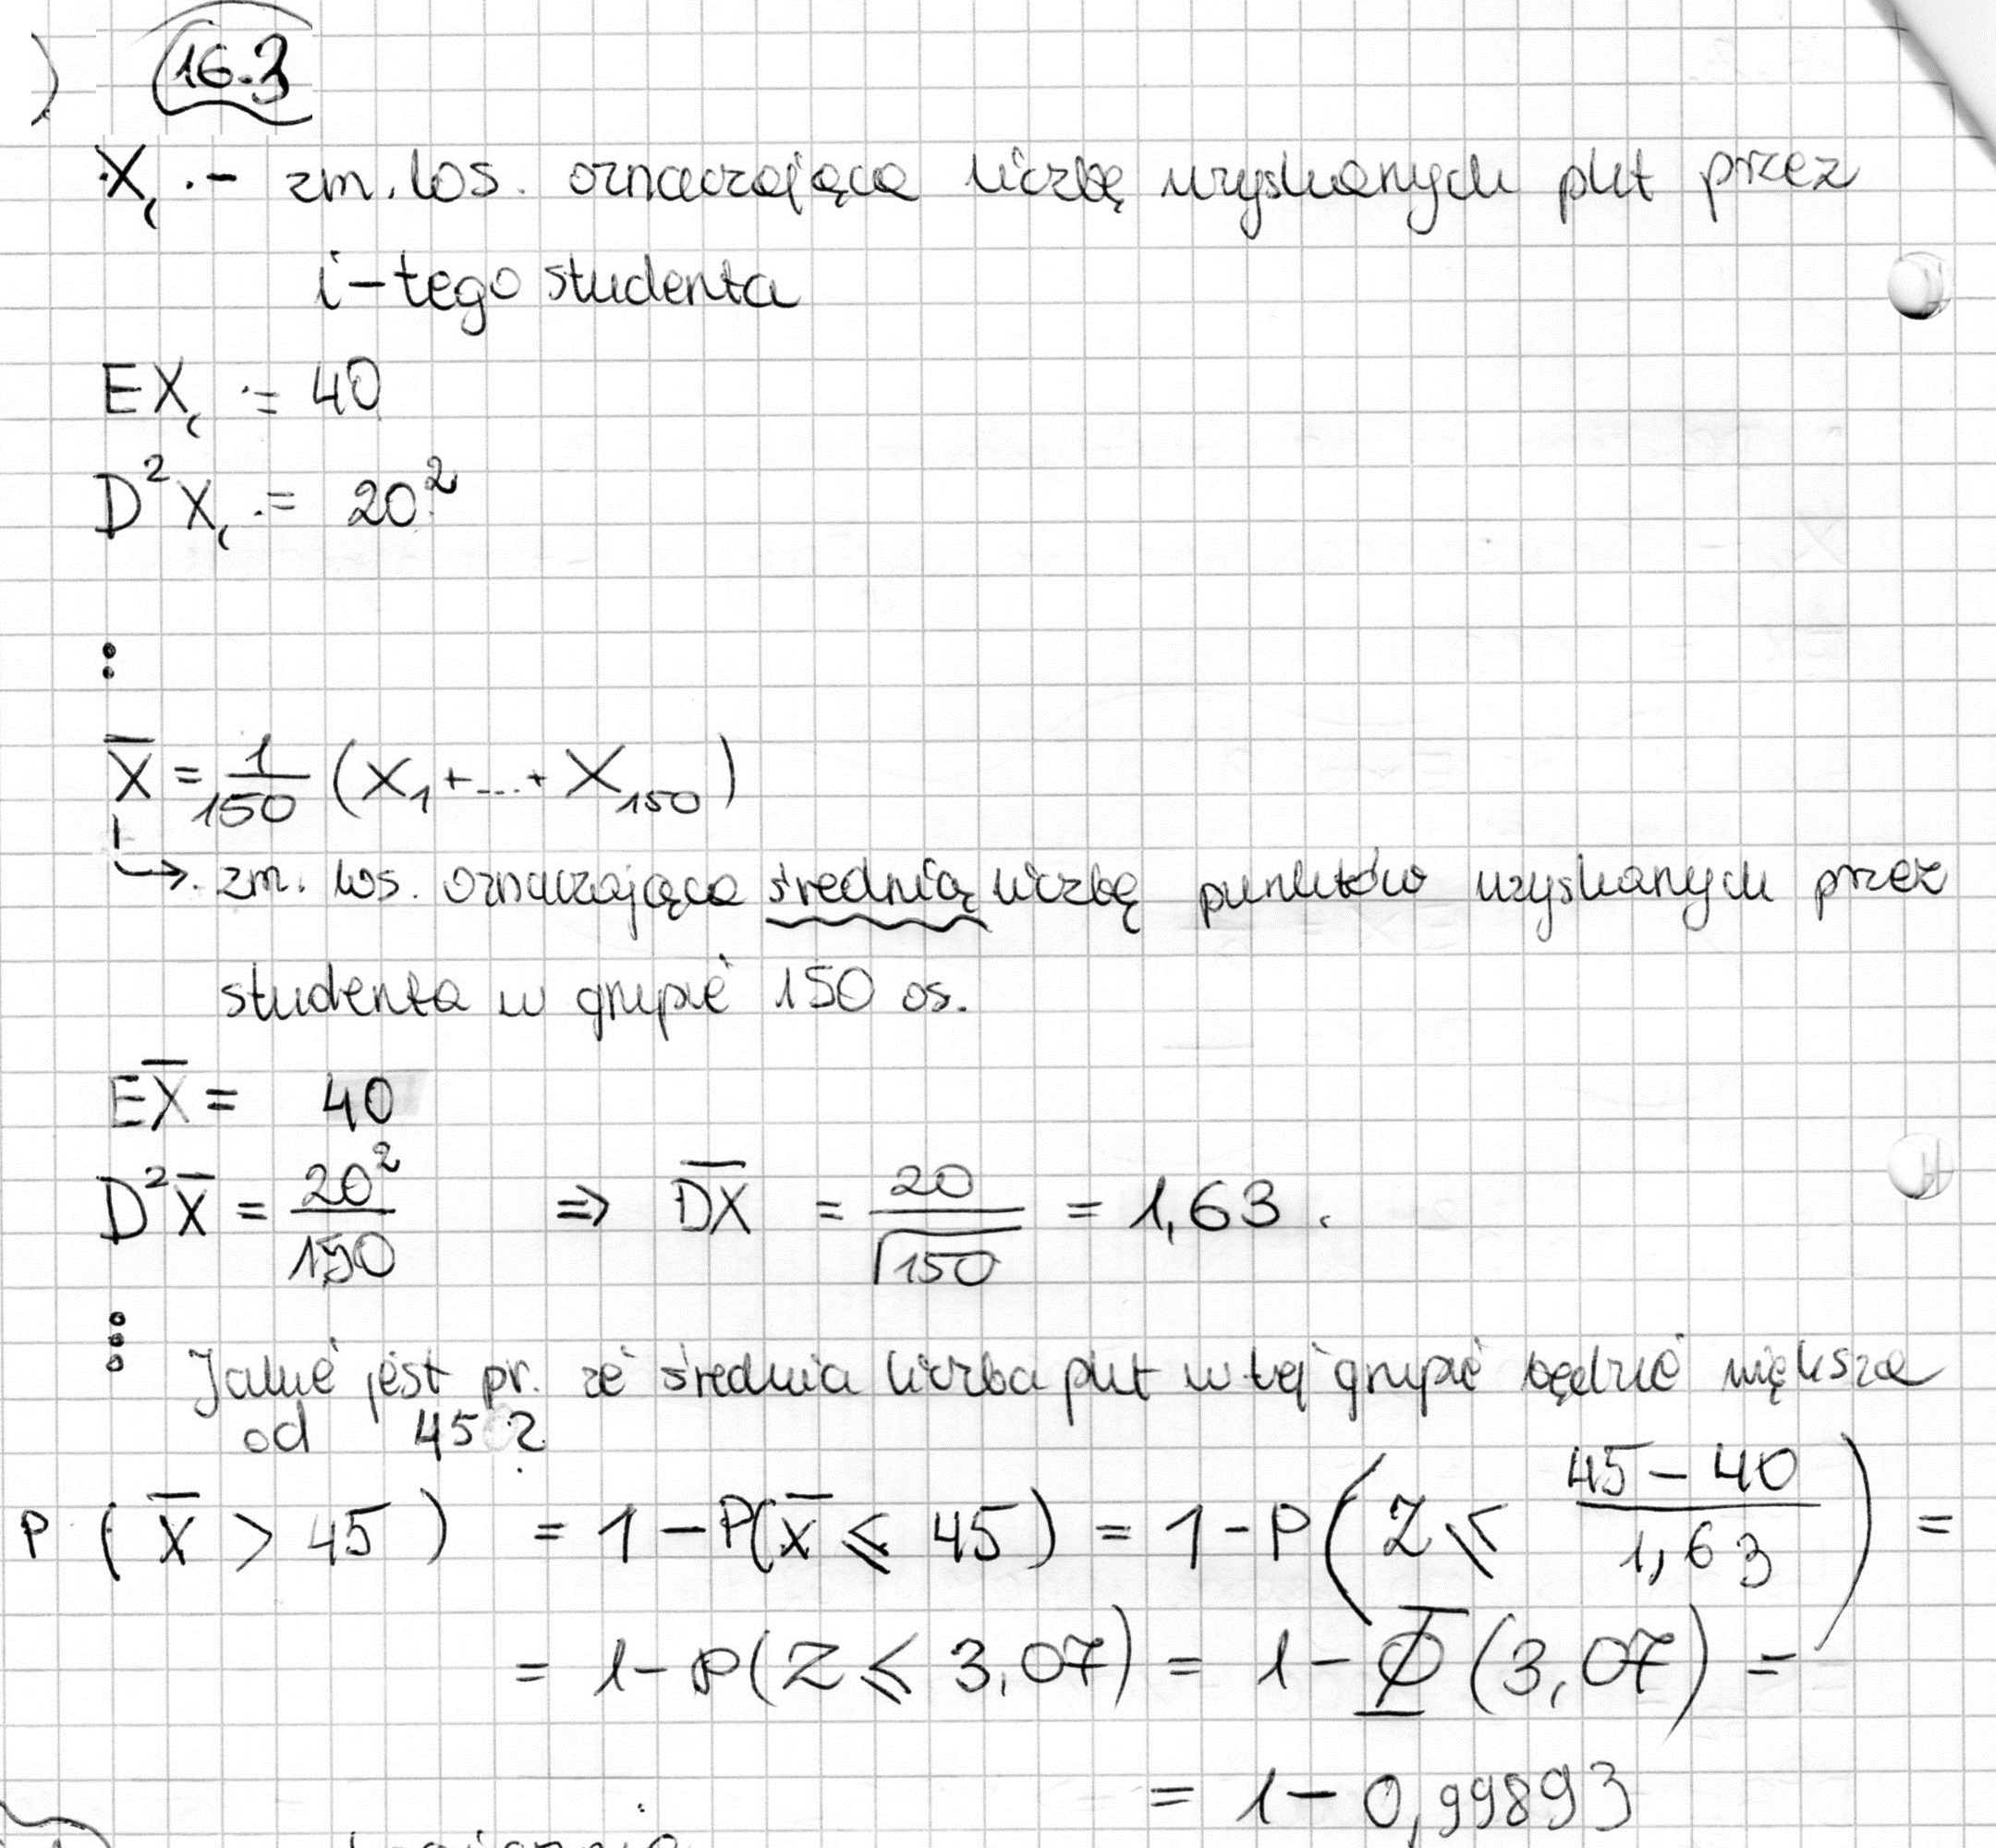 16.3
Xᵢ - zm. los. oznaczająca liczbę uzyskanych pkt przez
i-tego studenta
EXᵢ = 40
D²Xᵢ = 20²
:
X̅ = 1/150 (X₁ + ... + X₁₅₀)
↳ zm. los. oznaczająca średnią liczbę punktów uzyskanych przez
studenta w grupie 150 os.
EX̅ = 40
D²X̅ = 20²/150 ⇒ DX̅ = 20/√150 = 1,63.
Jakie jest pr. że średnia liczba pkt w tej grupie będzie większa
od 45?
P(X̅ > 45) = 1 - P(X̅ ⩽ 45) = 1 - P(Z ⩽ (45 - 40)/1,63) =
= 1 - P(Z ⩽ 3,07) = 1 - Φ(3,07) =
= 1 - 0,99893